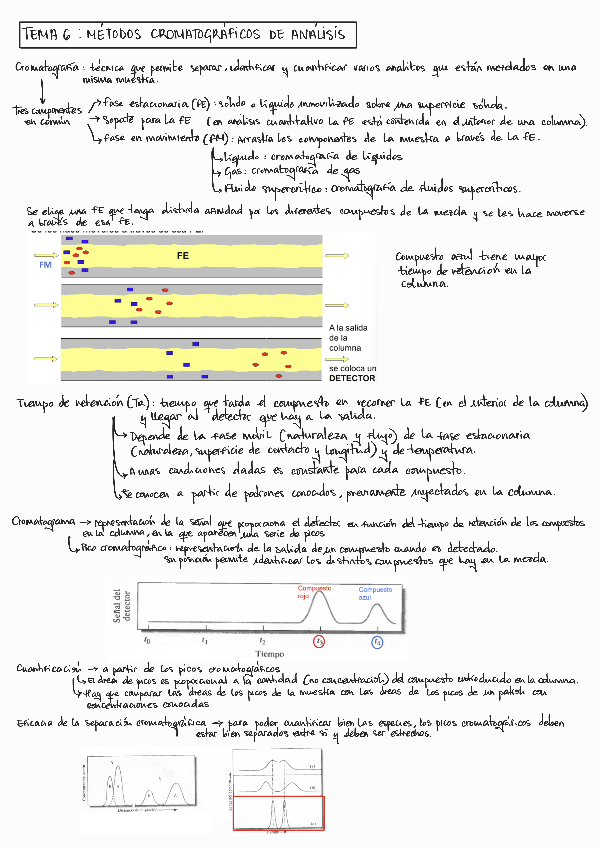 TEMA 6 : MÉTODOS CROMATOGRÁFICOS DE ANÁLISIS
Cromatografía : técnica que permite separar, identificar y cuantificar varios analitos que están mezclados en una
misma muestra.
Tres componentes
en común
fase estacionaria (FE) : sólido o líquido inmovilizado sobre una superficie sólida.
Sopote para la FE (en análisis cuantitativo la FE está contenida en el interior de una columna).
fase en movimiento (FM) : Arrastra los componentes de la muestra a través de la FE.
Líquido : cromatografía de líquidos
Gas : cromatografía de gas
Fluido supercrítico : cromatografía de fluidos supercríticos.
Se elige una FE que tenga distinta afinidad por los diferentes compuestos de la mezcla y se les hace moverse
a través de esa FE.
FM
FE
Compuesto azul tiene mayor
tiempo de retención en la
columna.
A la salida
de la
columna
se coloca un
DETECTOR
Tiempo de retención (TR) : tiempo que tarda el compuesto en recorrer la FE (en el interior de la columna)
y llegar al detector que hay a la salida.
Depende de la fase móvil (naturaleza y flujo) de la fase estacionaria
(naturaleza, superficie de contacto y longitud) y de temperatura.
A unas condiciones dadas es constante para cada compuesto.
Se conocen a partir de patrones conocidos, previamente inyectados en la columna.
Cromatograma → representación de la señal que proporciona el detector en función del tiempo de retención de los compuestos
en la columna, en la que aparecen una serie de picos
Pico cromatográfico : representación de la salida de un compuesto cuando es detectado.
Su posición permite identificar los distintos compuestos que hay en la mezcla.
Señal del
detector
Compuesto
rojo
Compuesto
azul
t0 t1 t2 t3 t4
Tiempo
Cuantificación → a partir de los picos cromatográficos
El área de picos es proporcional a la cantidad (no concentración) del compuesto introducido en la columna.
Hay que comparar las áreas de los picos de la muestra con las áreas de los picos de un patrón con
concentraciones conocidas
Eficacia de la separación cromatográfica → para poder cuantificar bien las especies, los picos cromatográficos deben
estar bien separados entre sí y deben ser estrechos.